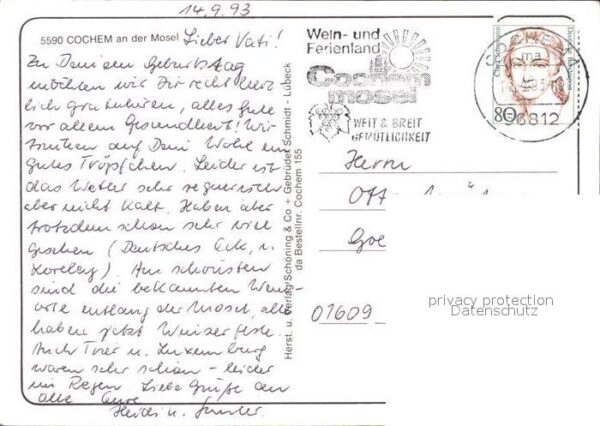 14.9.93
5590 COCHEM an der Mosel
Lieber Vati!
Zu Deinem Geburtstag
möchten wir Dir recht herz
lich gratulieren, alles Gute
vor allem Gesundheit! Wir
trinken auf Dein Wohl ein
gutes Tröpfchen. Leider ist
das Wetter sehr regnerisch
aber nicht kalt. Haben aber
trotzdem schon sehr viel
gesehen (Deutsches Eck, u.
Loreley). Am schönsten
sind die bekannten Wein-
orte entlang der Mosel, alle
haben jetzt Winzerfeste.
Auch Trier u. Luxemburg
waren sehr schön - leider
im Regen. Liebe Grüße an
alle Eure
Heidi u.
Herst. u. Verlag Schöning & Co + Gebrüder Schmidt - Lübeck
da Bestellnr. Cochem 155
Wein- und
Ferienland
Cochem
mosel
WEIT & BREIT
GEMÜTLICHKEIT
COCHEM
ma
56812
80
Deutsche Bundespost
Herrn
Ott
Goe
01609
privacy protection
Datenschutz